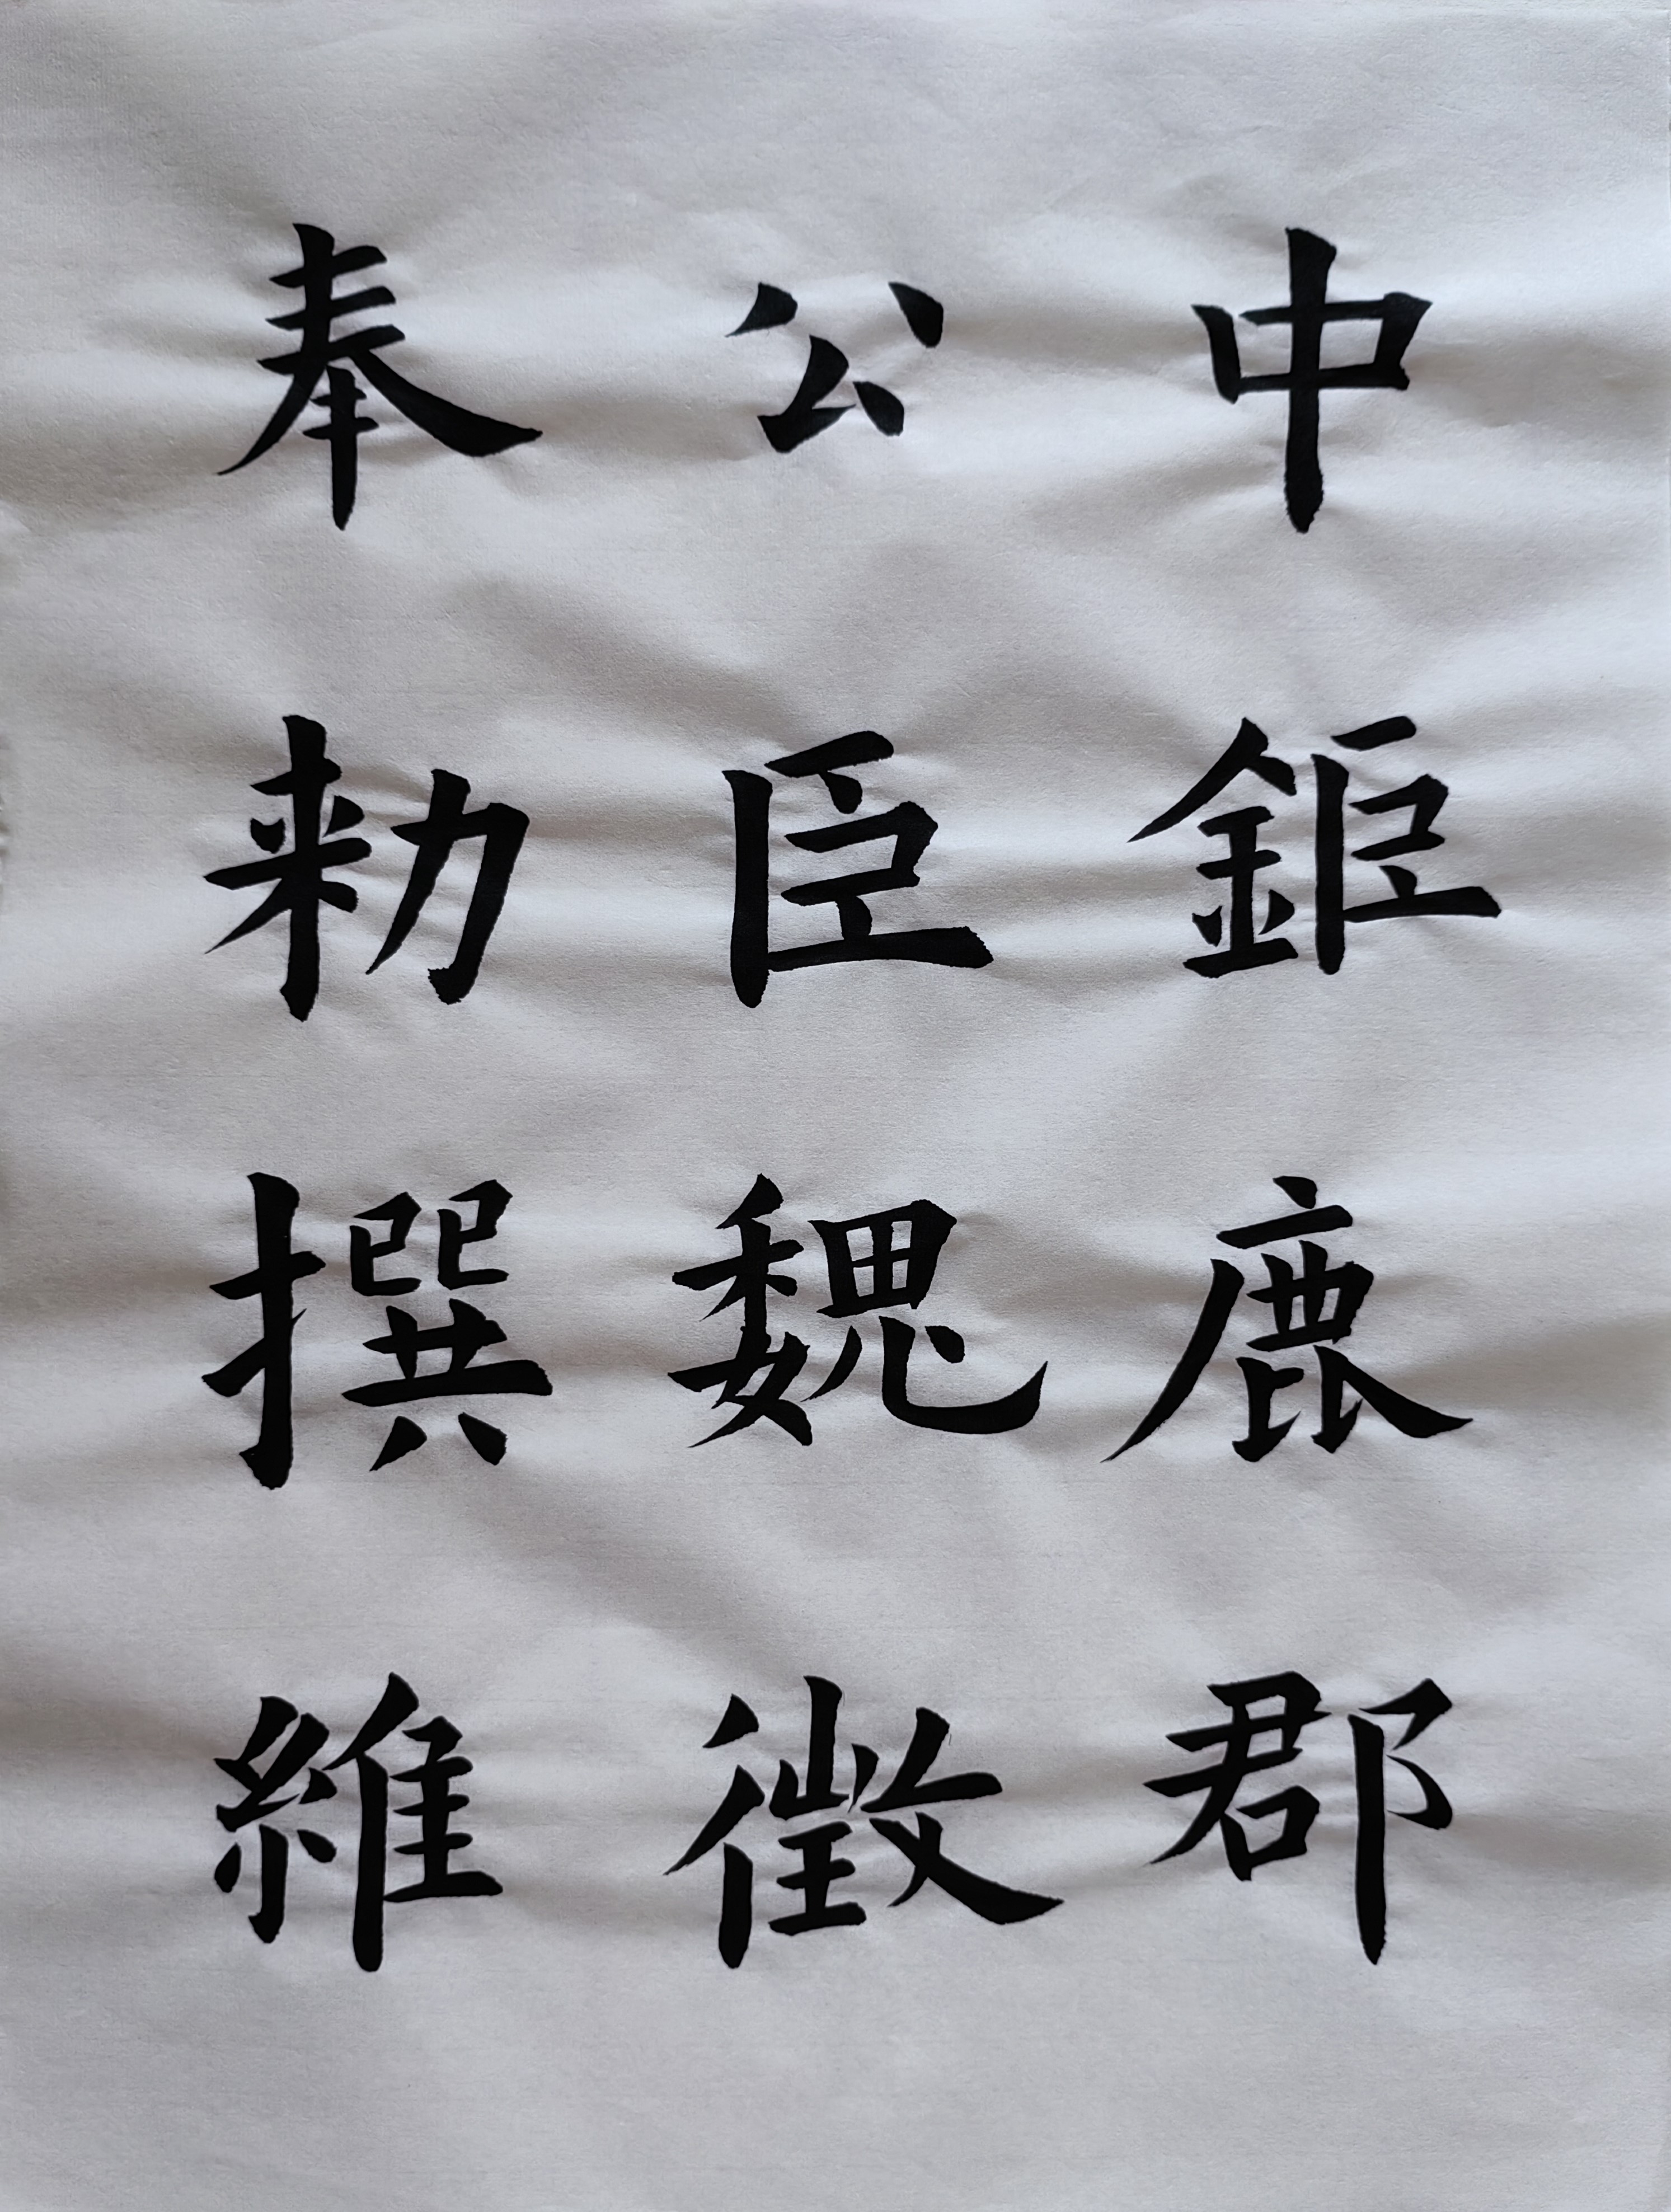 中鉅鹿郡
公臣魏徵
奉勑撰維